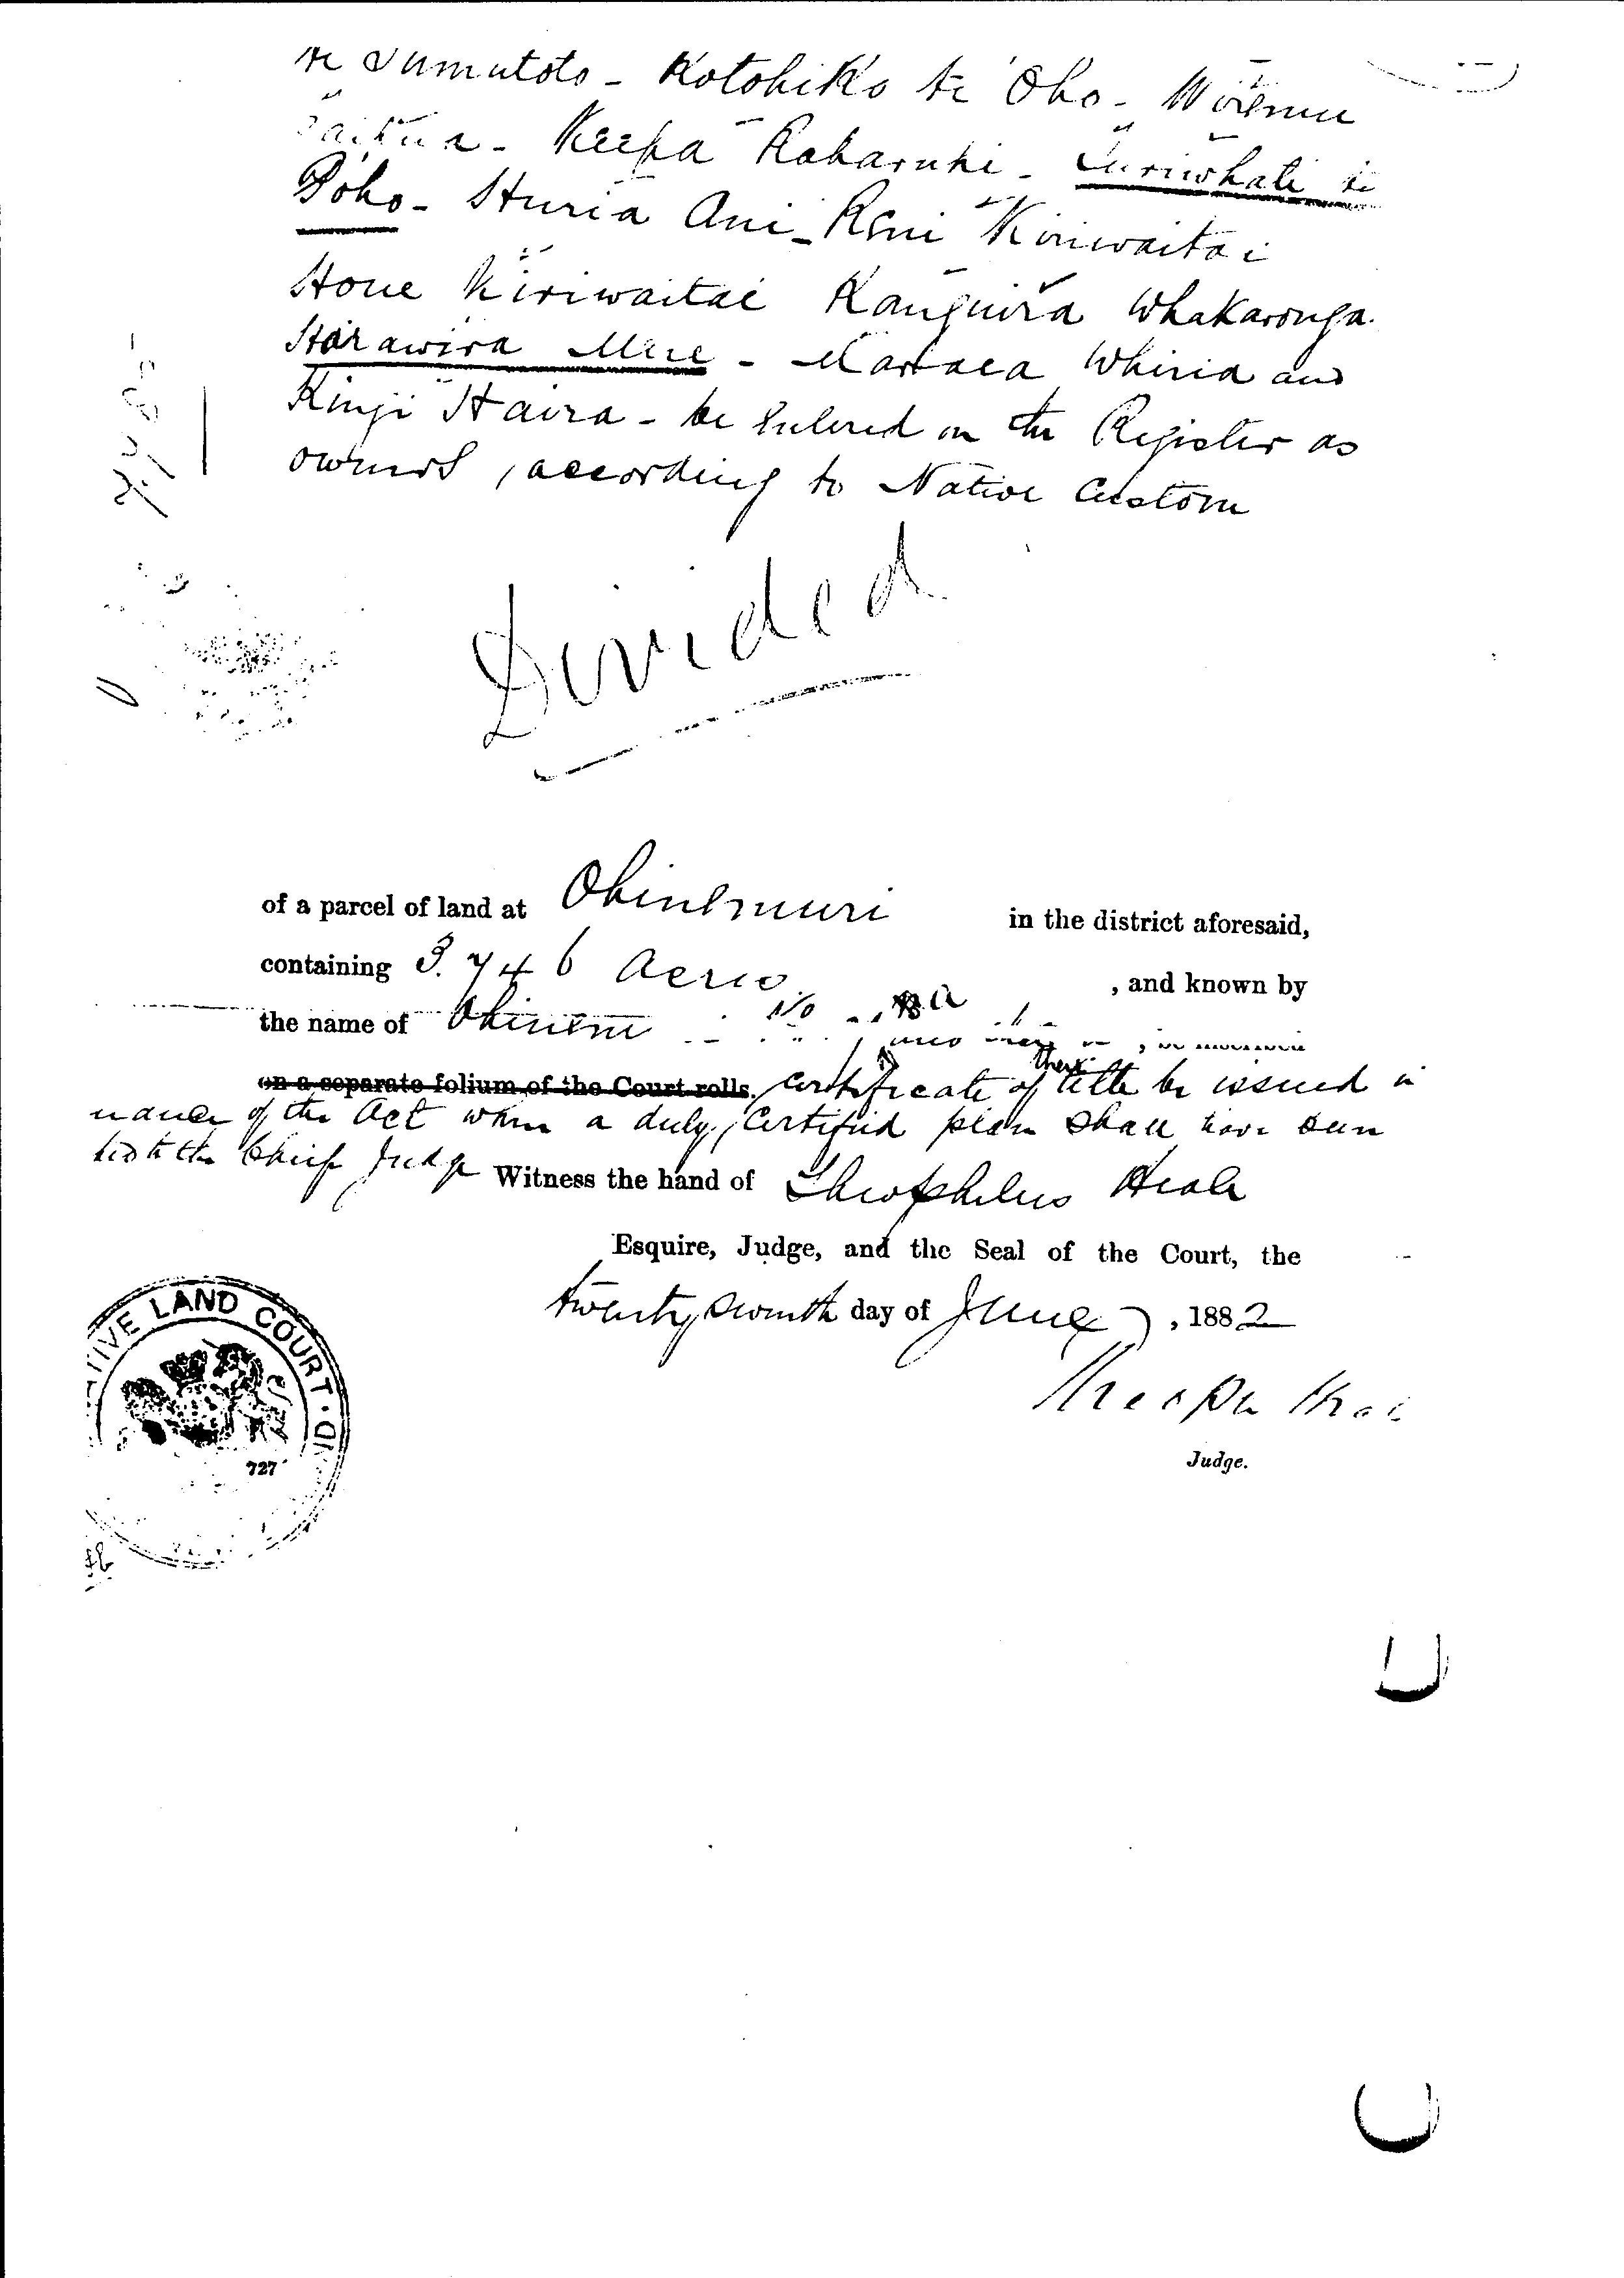 te Tumutoto - Kotohiko te Oho - Wiremu
Paikua - Keepa Raharuhi - Turiwhati te
Poho - Huria Ani - Reni Kiriwaitai
Hone Kiriwaitai Kanguira Whakaronga.
Harawira Mere - Mataea Whiria and
Kingi Haira - be entered on the Register as
owners, according to Native Custom
Divided
of a parcel of land at Ohinemuri in the district aforesaid,
containing 3.746 Acres , and known by
the name of Ohinem No
on a separate folium of the Court rolls. Certificate of title be issued in
of the Act when a duly certified plan shall have been
to the Chief Judge Witness the hand of Theophilus Heale
Esquire, Judge, and the Seal of the Court, the
twenty seventh day of June , 1882
Theoph Heale
Judge.
TIVE LAND COURT · ND
727